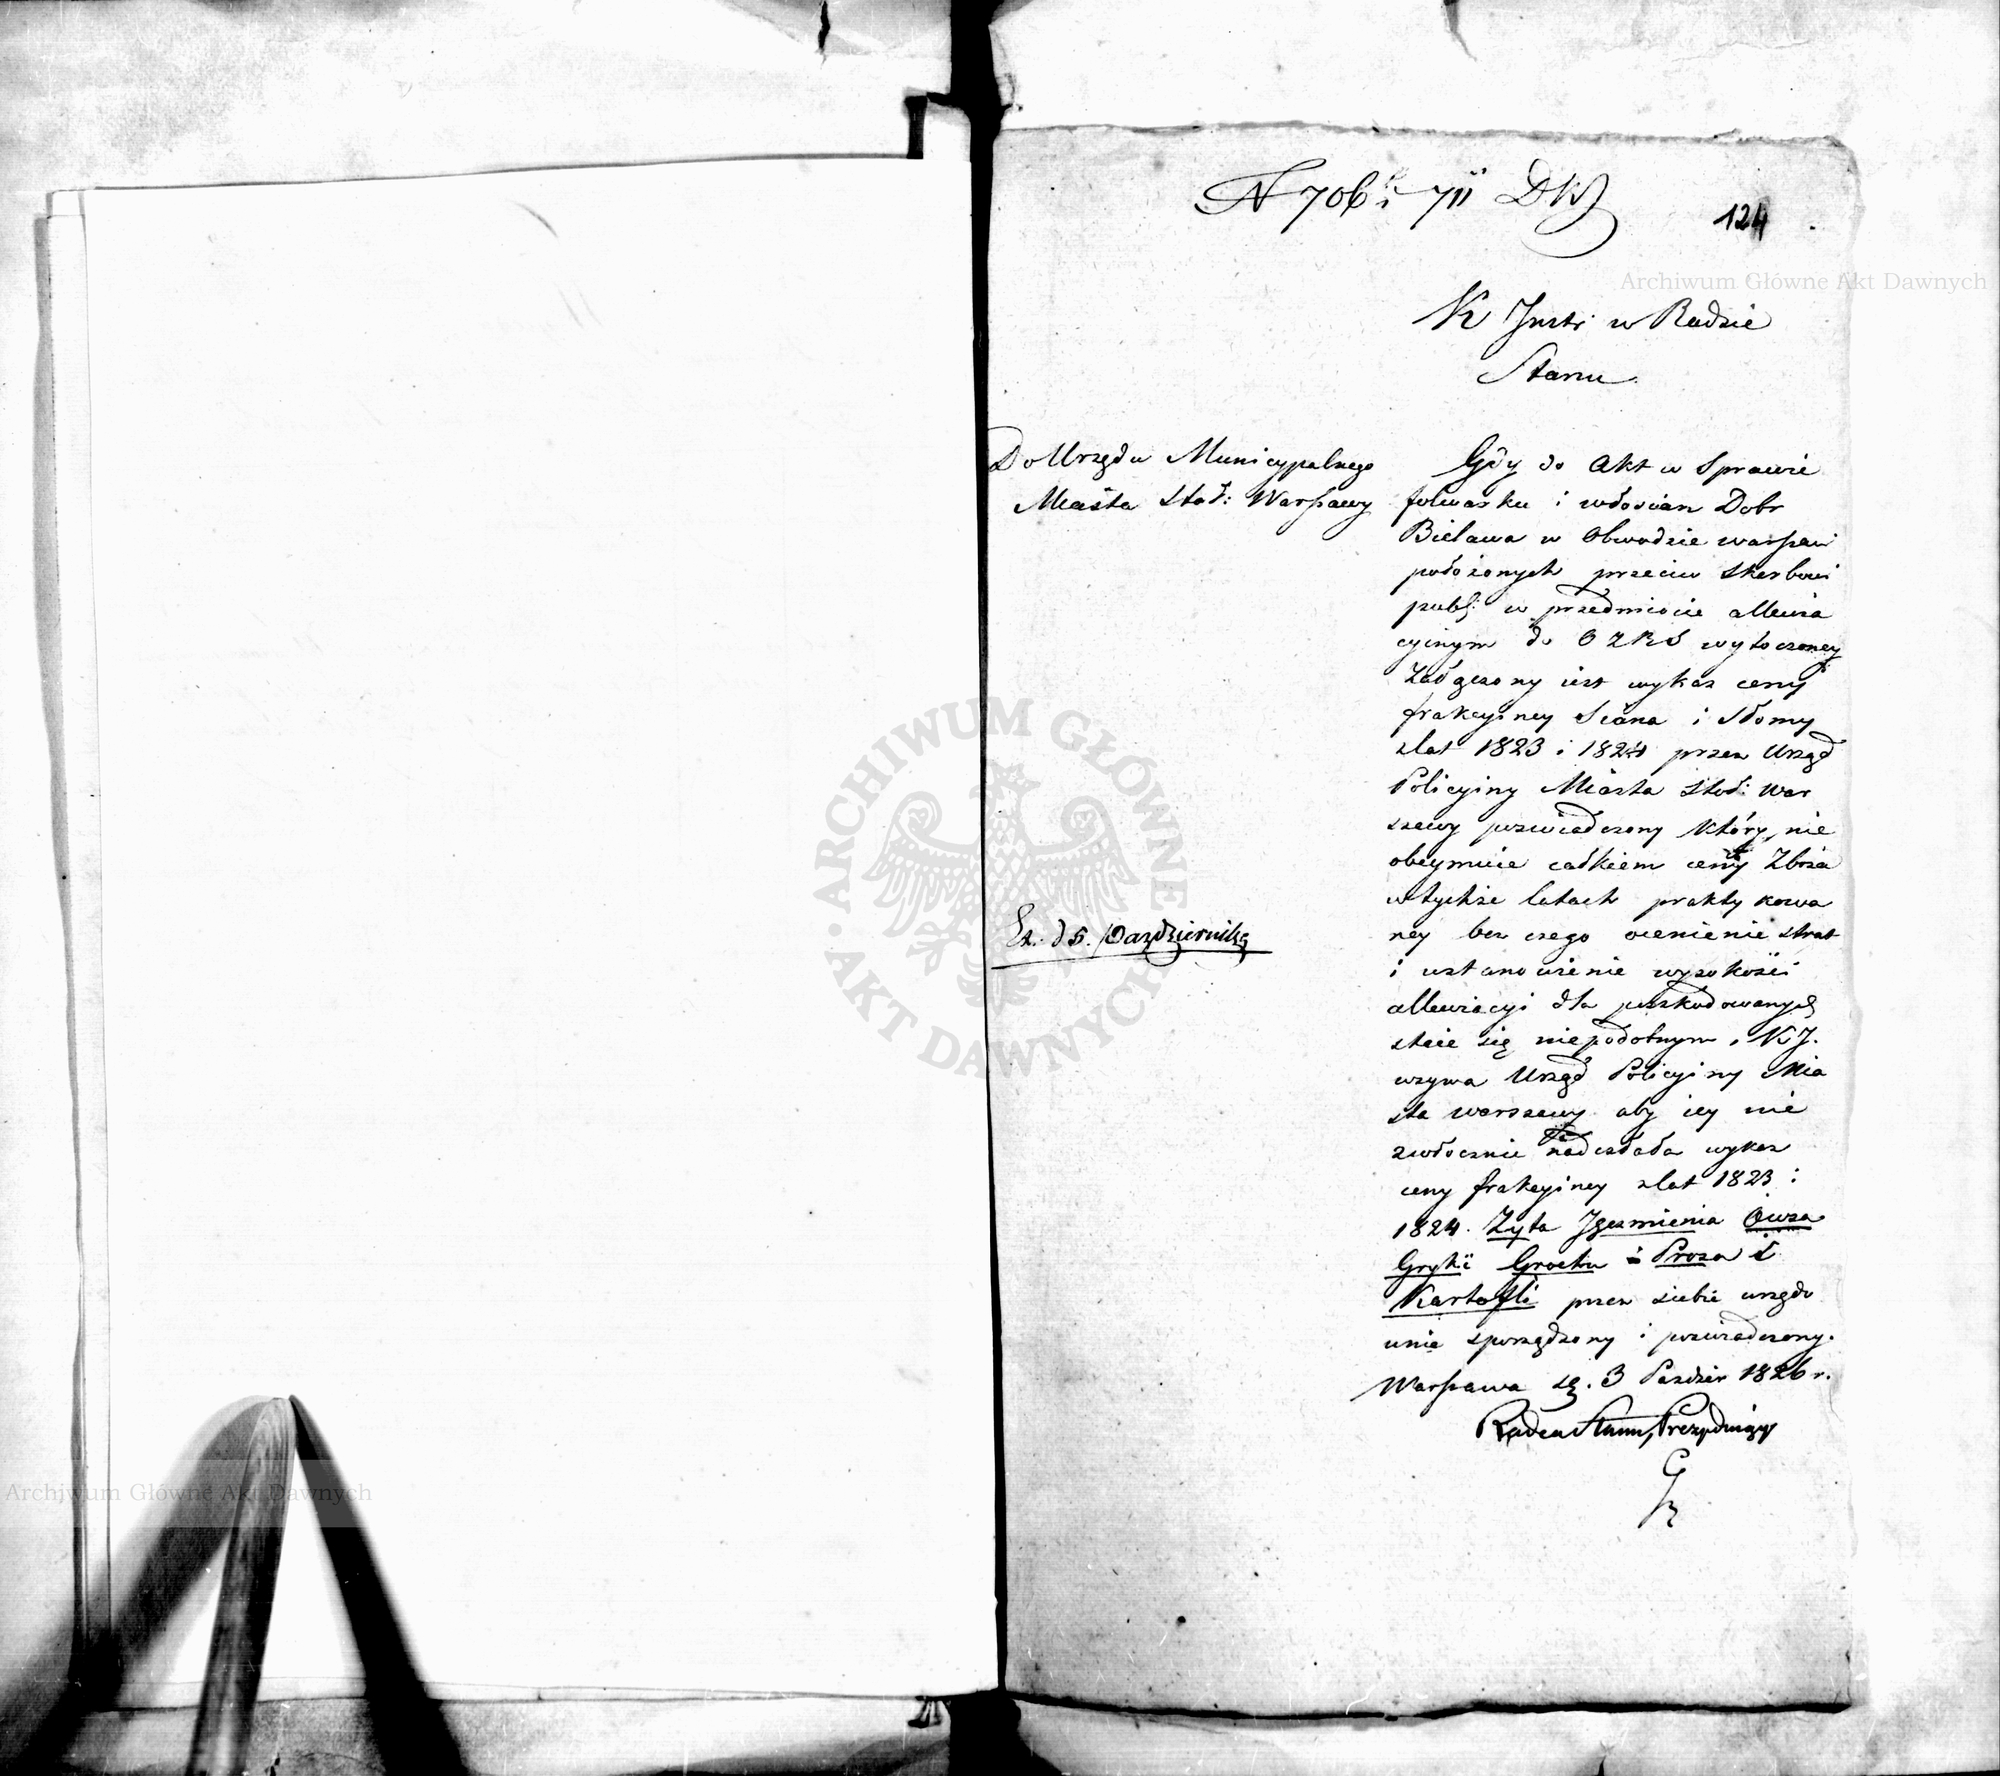 N 706 i 711 DK
124
K Instr: w Radzie
Stanu
Do Urzędu Municypalnego
Miasta Stoł: Warszawy
Gdy do Akt w Sprawie
folwarku i włościan Dobr
Bielawa w Obwodzie warszaw
położonych przeciw Skarbowi
publ: w przedmiocie allewia
cyinym do wytoczoney
Załączony iest wykaz ceny
frakcyiney Siana i Słomy
z lat 1823 i 1824 przez Urząd
Policyiny Miasta Stoł: War
szawy poświadczony który nie
obeymuie całkiem ceny Zboża
w tychże latach praktykowa
ney bez czego ocenienie strat
i ustanowienie wysokości
allewiacyi dla poszkodowanych
staie się niepodobnym, K J.
wzywa Urząd Policyiny Mia
sta warszawy aby iey nie
zwłocznie nadesłała wykaz
ceny frakcyiney z lat 1823 i
1824. Zyta Jęczmienia Owsa
Gryki Grochu i Prosa i
Kartofli przez siebie urzędo
wnie sporządzony i poświadczony.
Warszawa d. 3 Paździer 1826 r.
Radca Stanu, Prezyduiący
Ex. d 5. Października
Archiwum Główne Akt Dawnych
ARCHIWUM GŁÓWNE AKT DAWNYCH
Archiwum Główne Akt Dawnych